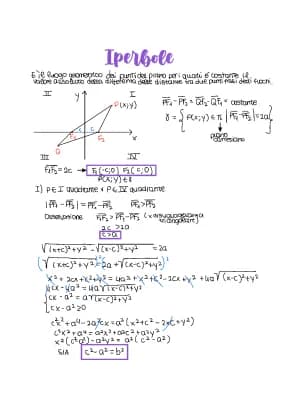 Iperbole
È il luogo geometrico dei punti del piano per i quali è costante il
valore assoluto della differenza delle distanze tra due punti fissi detti fuochi.
II y I
P(x;y)
F₁ F₂ x
Q
III IV
PF₁ - PF₂ = QF₂ - QF₁ = costante
γ = { P(x;y) ∈ π | |PF₁ - PF₂| = 2a }
piano
cartesiano
F₁F₂ = 2c → F₁(-c;0) F₂(c;0)
P(x;y) ∈ γ
I) P ∈ I quadrante ∨ P ∈ IV quadrante
|PF₁ - PF₂| = PF₁ - PF₂ PF₁ > PF₂
Osservazione F₁F₂ > PF₁ - PF₂
2c > 2a
c > a
√(x+c)²+y² - √(x-c)²+y² = 2a
(√(x+c)²+y²)² = (2a + √(x-c)²+y²)²
x² + 2cx + c² + y² = 4a² + x² + c² - 2cx + y² + 4a√(x-c)²+y²
4cx - 4a² = 4a√(x-c)²+y²
cx - a² = a√(x-c)²+y²
cx - a² ≥ 0
c²x² + a⁴ - 2a²cx = a²(x² + c² - 2xc + y²)
c²x² + a⁴ = a²x² + a²c² + a²y²
x²(c² - a²) - a²y² = a²(c² - a²)
SIA c² - a² = b²